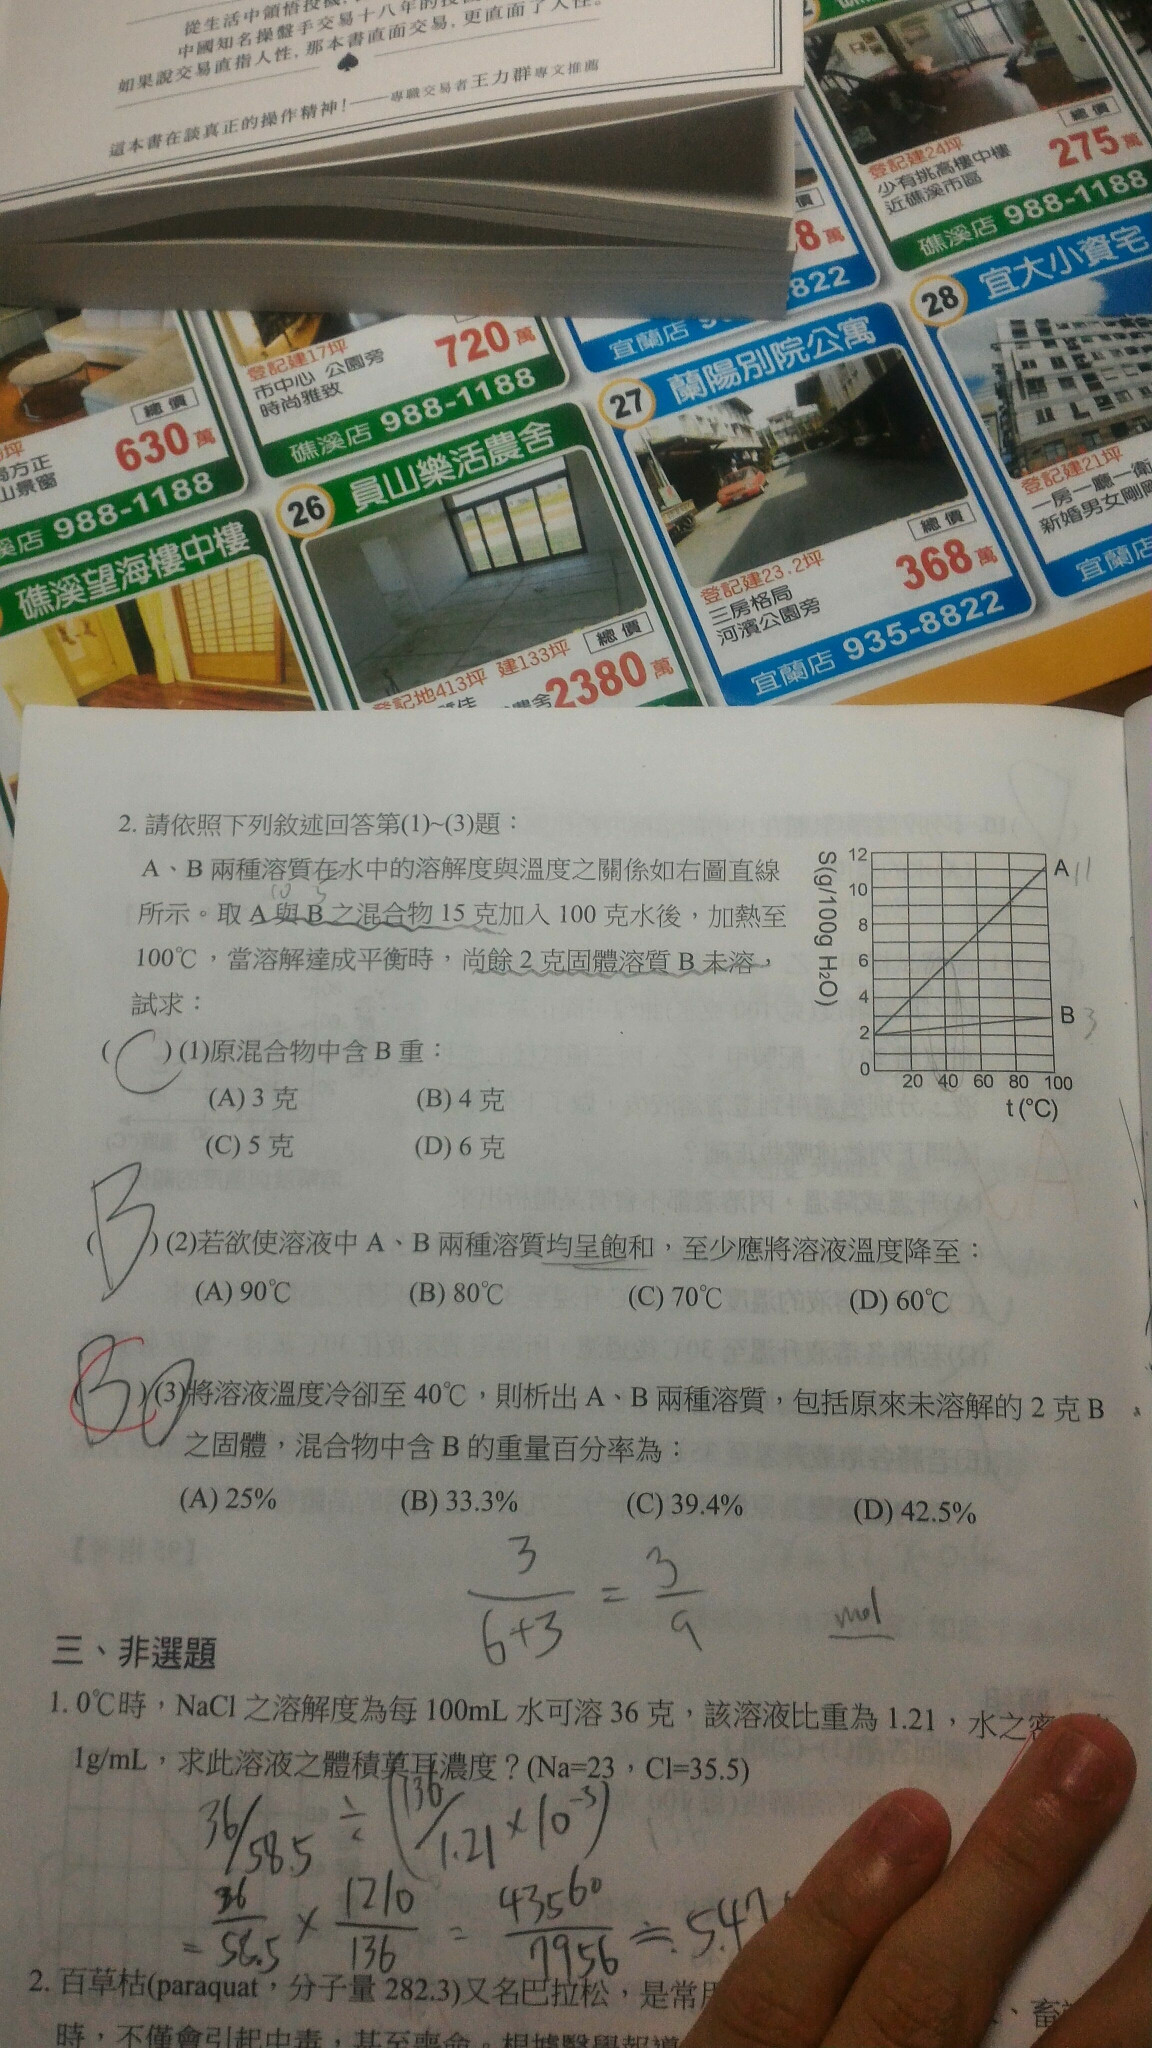 中國知名操盤手交易十八年的
如果說交易直指人性,那本書直面交易,更直面了人性。
這本書在談真正的操作精神!——專職交易者王力群專文推薦
登記建24坪
少有挑高樓中樓
近礁溪市區
總價
275萬
礁溪店 988-1188
8萬
822
宜蘭店
28 宜大小資宅
登記建17坪
市中心 公園旁
時尚雅致
720萬
礁溪店 988-1188
總價
630萬
988-1188
27 蘭陽別院公寓
登記建23.2坪
三房格局
河濱公園旁
總價
368萬
宜蘭店 935-8822
登記建21坪
一房一廳一衛
新婚男女剛
宜蘭店
26 員山樂活農舍
登記地413坪 建133坪
總價
2380萬
礁溪望海樓中樓
2. 請依照下列敘述回答第(1)~(3)題:
A、B 兩種溶質在水中的溶解度與溫度之關係如右圖直線
10 5
所示。取 A 與 B 之混合物 15 克加入 100 克水後,加熱至
100℃,當溶解達成平衡時,尚餘 2 克固體溶質 B 未溶,
試求:
S(g/100g H₂O)
12
10
8
6
4
2
0
20 40 60 80 100
t(℃)
A 11
B 3
( C )(1)原混合物中含 B 重:
(A) 3 克 (B) 4 克
(C) 5 克 (D) 6 克
( B )(2)若欲使溶液中 A、B 兩種溶質均呈飽和,至少應將溶液溫度降至:
(A) 90℃ (B) 80℃ (C) 70℃ (D) 60℃
( B )(3)將溶液溫度冷卻至 40℃,則析出 A、B 兩種溶質,包括原來未溶解的 2 克 B
之固體,混合物中含 B 的重量百分率為:
(A) 25% (B) 33.3% (C) 39.4% (D) 42.5%
3/6+3 = 3/9
mol
三、非選題
1. 0℃時,NaCl 之溶解度為每 100mL 水可溶 36 克,該溶液比重為 1.21,水之密
1g/mL,求此溶液之體積莫耳濃度?(Na=23,Cl=35.5)
36/58.5 ÷ (136/1.21 × 10⁻³)
= 36/58.5 × 1210/136 = 43560/7956 ≒ 5.47
2. 百草枯(paraquat,分子量 282.3)又名巴拉松,是常用
時,不僅會引起中毒,甚至喪命。根據醫學報導